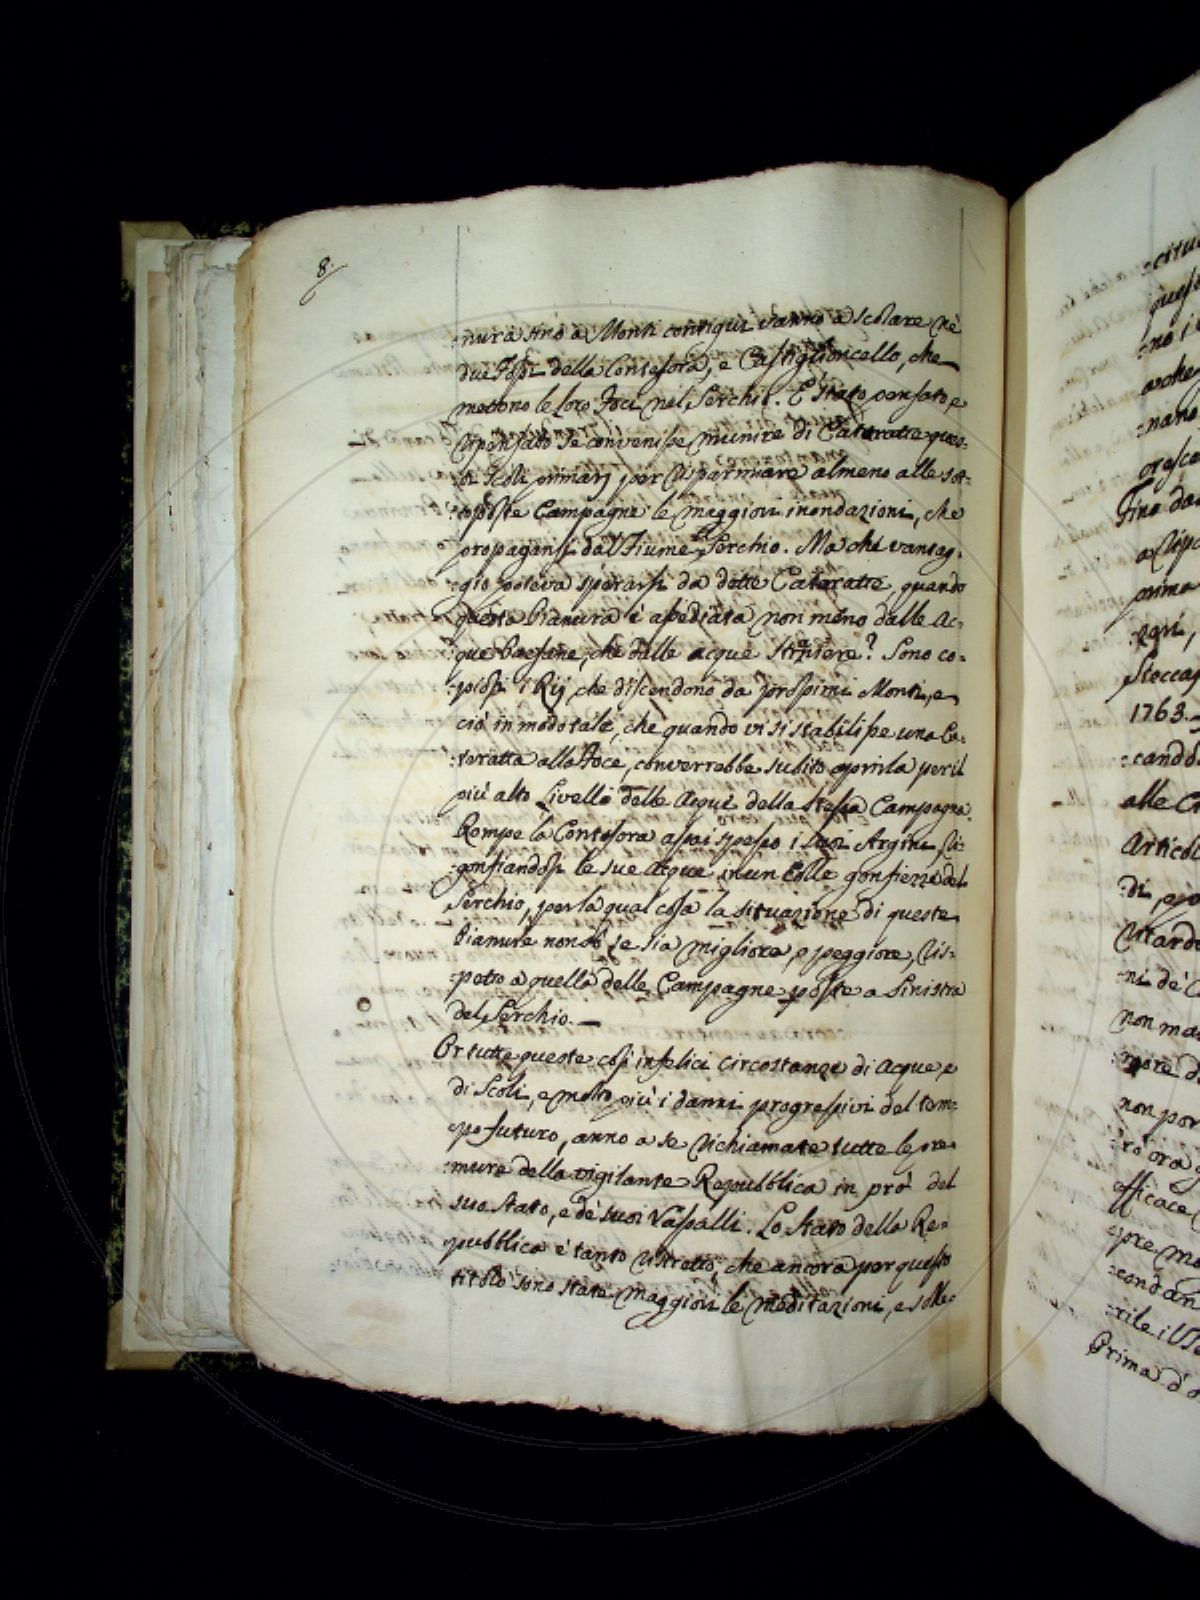 8.
:nura sino a Monti contigui vanno a scolare nè
due Fossi della Contesora, e Castiglioncello, che
mettono le loro Foci nel Serchio. È stato pensato, e
ripensato se convenisse munire di Cataratte ques-
:ti Scoli primarj per risparmiare almeno alle sot-
:toposte Campagne le maggiori inondazioni, che
propagansi dal Fiume Serchio. Ma che vantag-
:gio poteva sperarsi da dette Cataratte, quando
questa Pianura è assediata non meno dalle Ac-
:que Paesane, che dalle acque straniere? Sono co-
:piosi i Rij che discendono da prossimi Monti, e
ciò in modo tale, che quando vi si stabilisse una Ca-
:teratta alla Foce, converrebbe subito aprirla per il
più alto Livello delle Acque della stessa Campagna.
Rompe la Contesora assai spesso i suoi Argini, ri-
:gonfiandosi le sue Acque in un colle gonfiezze del
Serchio, per la qual cosa la situazione di queste
Pianure non so se sia migliore, o peggiore, ris-
:petto a quella delle Campagne poste a Sinistra
del Serchio.
Or tutte queste così infelici circostanze di Acque, e
di Scoli, e molto più i danni progressivi del tem-
:po futuro, anno a se richiamate tutte le pre-
:mure della vigilante Repubblica in prò del
suo Stato, e de' suoi Vassalli. Lo Stato della Re-
:pubblica è tanto ristretto, che ancora per questo
titolo sono state maggiori le meditazioni, e solle-
Fino da
prima
1763.
:cando
alle
Articol
di
non
:more
non
:rò ora
efficace
Prima d'